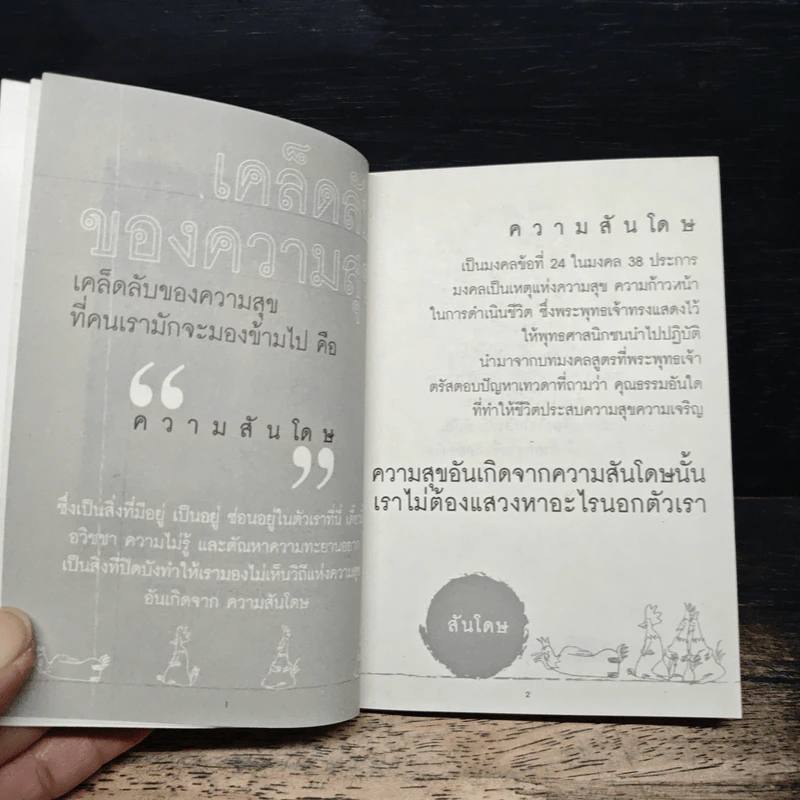 เคล็ดลับ
ของความสุข
เคล็ดลับของความสุข
ที่คนเรามักจะมองข้ามไป คือ
“
ความสันโดษ
”
ซึ่งเป็นสิ่งที่มีอยู่ เป็นอยู่ ซ่อนอยู่ในตัวเราที่นี่
อวิชชา ความไม่รู้ และตัณหาความทะยานอยาก
เป็นสิ่งที่ปิดบังทำให้เรามองไม่เห็นวิถีแห่งความสุข
อันเกิดจาก ความสันโดษ
1
ความสันโดษ
เป็นมงคลข้อที่ 24 ในมงคล 38 ประการ
มงคลเป็นเหตุแห่งความสุข ความก้าวหน้า
ในการดำเนินชีวิต ซึ่งพระพุทธเจ้าทรงแสดงไว้
ให้พุทธศาสนิกชนนำไปปฏิบัติ
นำมาจากบทมงคลสูตรที่พระพุทธเจ้า
ตรัสตอบปัญหาเทวดาที่ถามว่า คุณธรรมอันใด
ที่ทำให้ชีวิตประสบความสุขความเจริญ
ความสุขอันเกิดจากความสันโดษนั้น
เราไม่ต้องแสวงหาอะไรนอกตัวเรา
สันโดษ
2